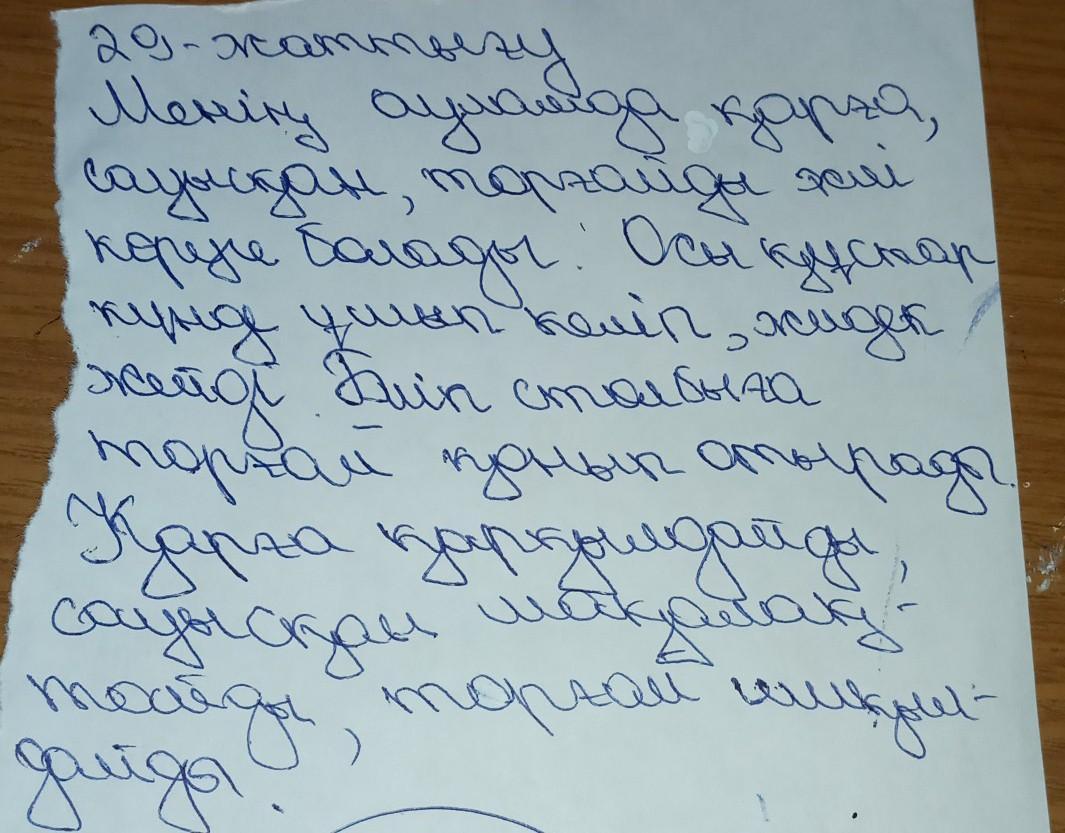 29-жаттығу
Менің ауламда қарға,
сауысқан, торғайды жиі
көруге болады. Осы құстар
күнде ұшып келіп, жидек
жейді. Бөліп столбыға
торғай қонып отырады.
Қарға қарқылдайды,
сауысқан шақалақ-
тайды, торғай шиқыл-
дайды.